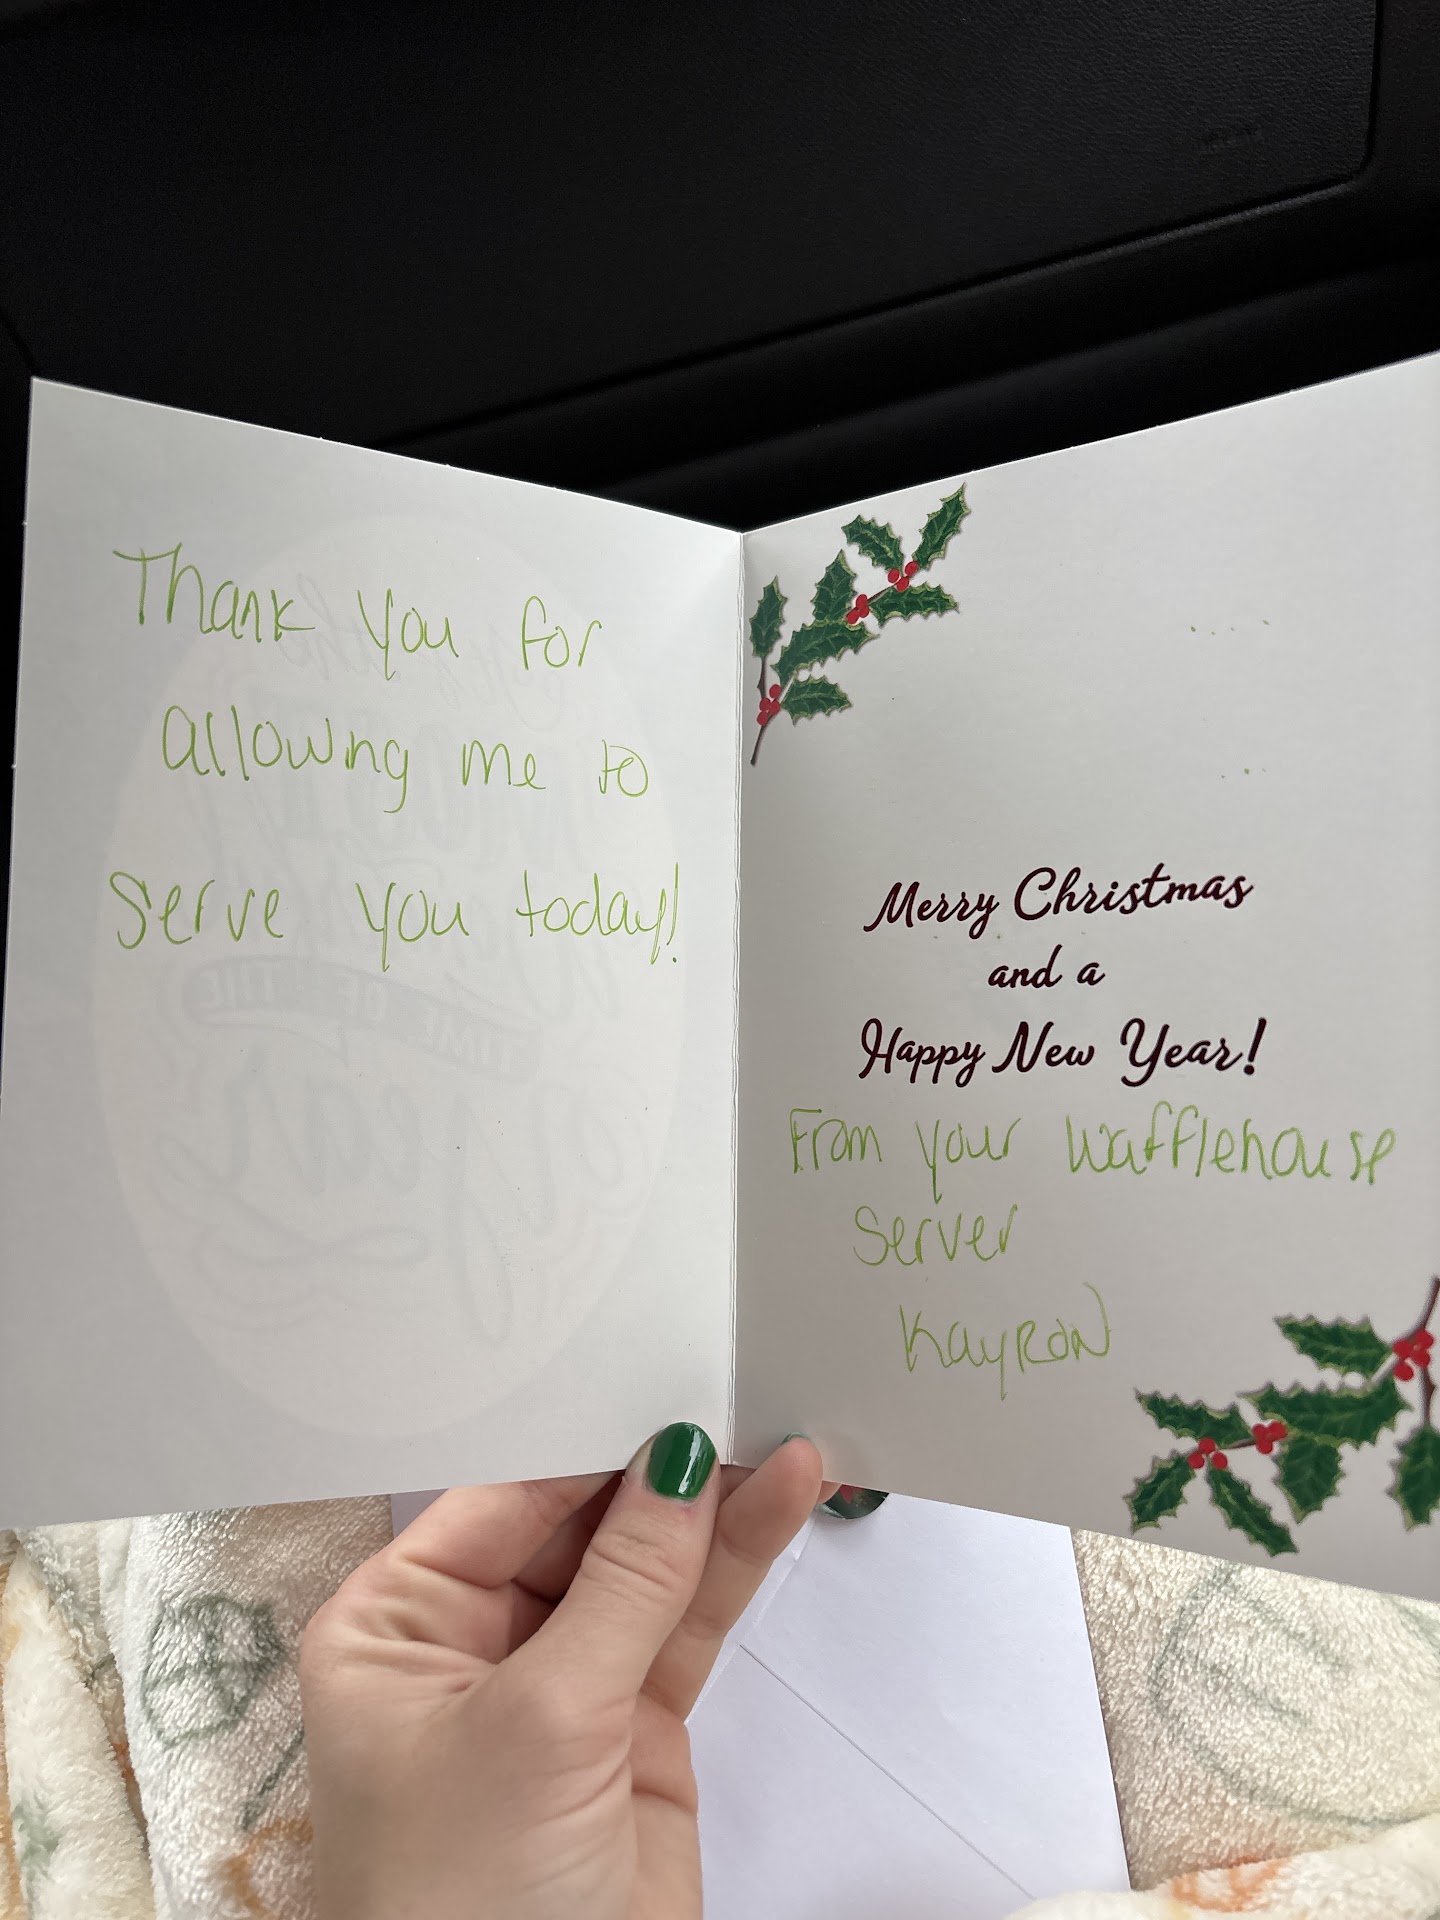 Thank you for
allowing me to
serve you today!
Merry Christmas
and a
Happy New Year!
From your Wafflehouse
Server
KayRoN